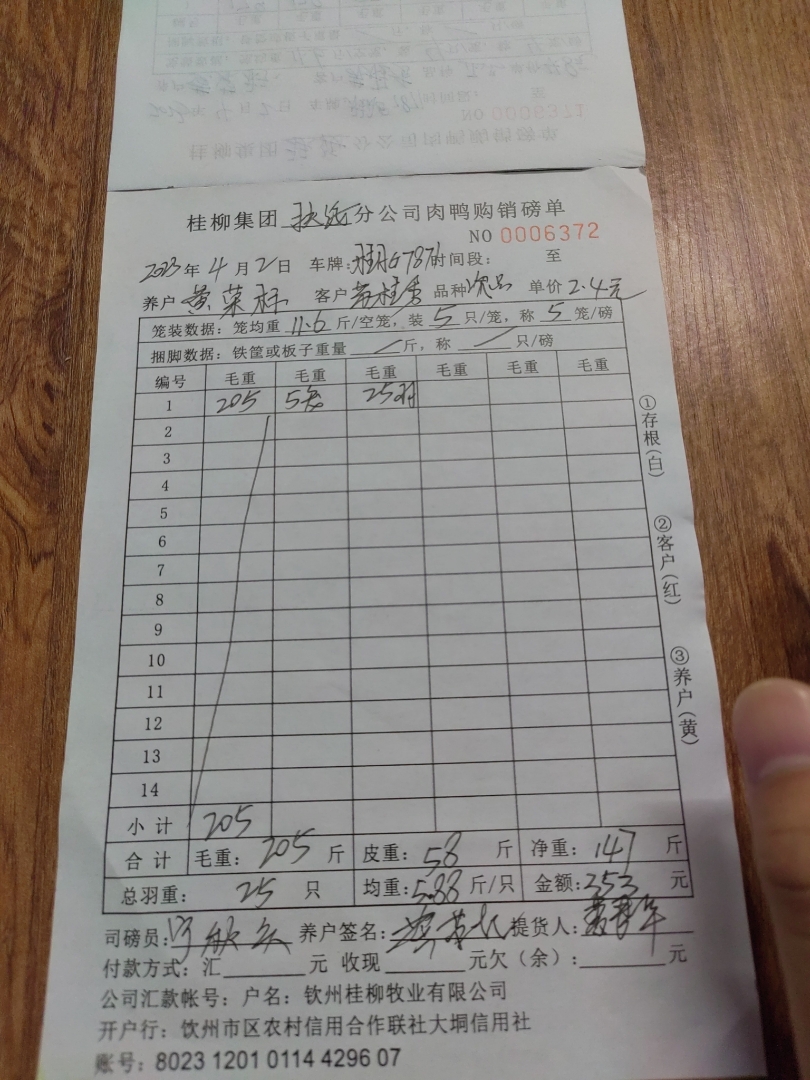 桂柳集团 分公司肉鸭购销磅单
NO 0006371
桂柳集团 分公司肉鸭购销磅单
NO 0006372
2023年4月2日 车牌: 时间段: 至
养户 黄荣标 客户 品种 次品 单价 2.4元
笼装数据：笼均重 11.6 斤/空笼，装 5 只/笼，称 5 笼/磅
捆脚数据：铁筐或板子重量 斤，称 只/磅
编号 毛重 毛重 毛重 毛重 毛重 毛重
1 205 5笼 25羽
2
3
4
5
6
7
8
9
10
11
12
13
14
小计 205
合计 毛重：205 斤 皮重：58 斤 净重：147 斤
总羽重： 25 只 均重：5.88 斤/只 金额：353 元
司磅员： 养户签名： 提货人：
付款方式：汇 元 收现 元欠（余）： 元
公司汇款帐号：户名：钦州桂柳牧业有限公司
开户行：饮州市区农村信用合作联社大垌信用社
账号：8023 1201 0114 4296 07
①存根（白）
②客户（红）
③养户（黄）